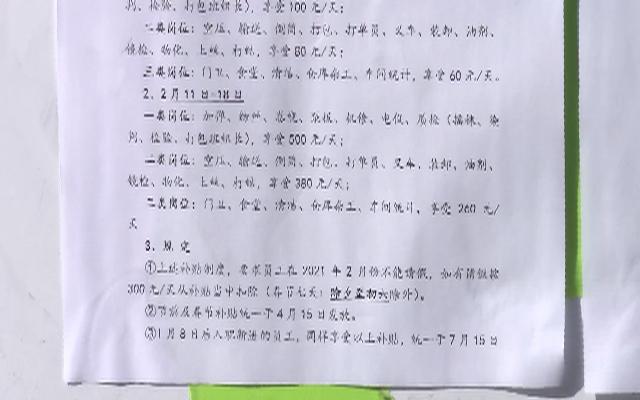 剂、检验、打包班组长），享受100元/天；
二类岗位：空压、输送、倒筒、打包、打单员、叉车、装卸、油剂、
镜检、物化、上丝、打纸，享受80元/天；
三类岗位：门卫、食堂、清洁、仓库杂工、车间统计，享受60元/天。
2、2月11日-18日
一类岗位：加弹、纺丝、卷绕、组板、机修、电仪、质检（摇袜、染
判、检验、打包班组长），享受500元/天；
二类岗位：空压、输送、倒筒、打包、打单员、叉车、装卸、油剂、
镜检、物化、上丝、打纸，享受380元/天；
三类岗位：门卫、食堂、清洁、仓库杂工、车间统计，享受260元/
天
3、规定
①上述补贴制度，要求员工在2021年2月份不能请假，如有请假按
300元/天从补贴当中扣除（春节七天：除夕至初六除外）。
②节前及春节补贴统一于4月15日发放。
③1月8日后入职新进的员工，同样享受以上补贴，统一于7月15日